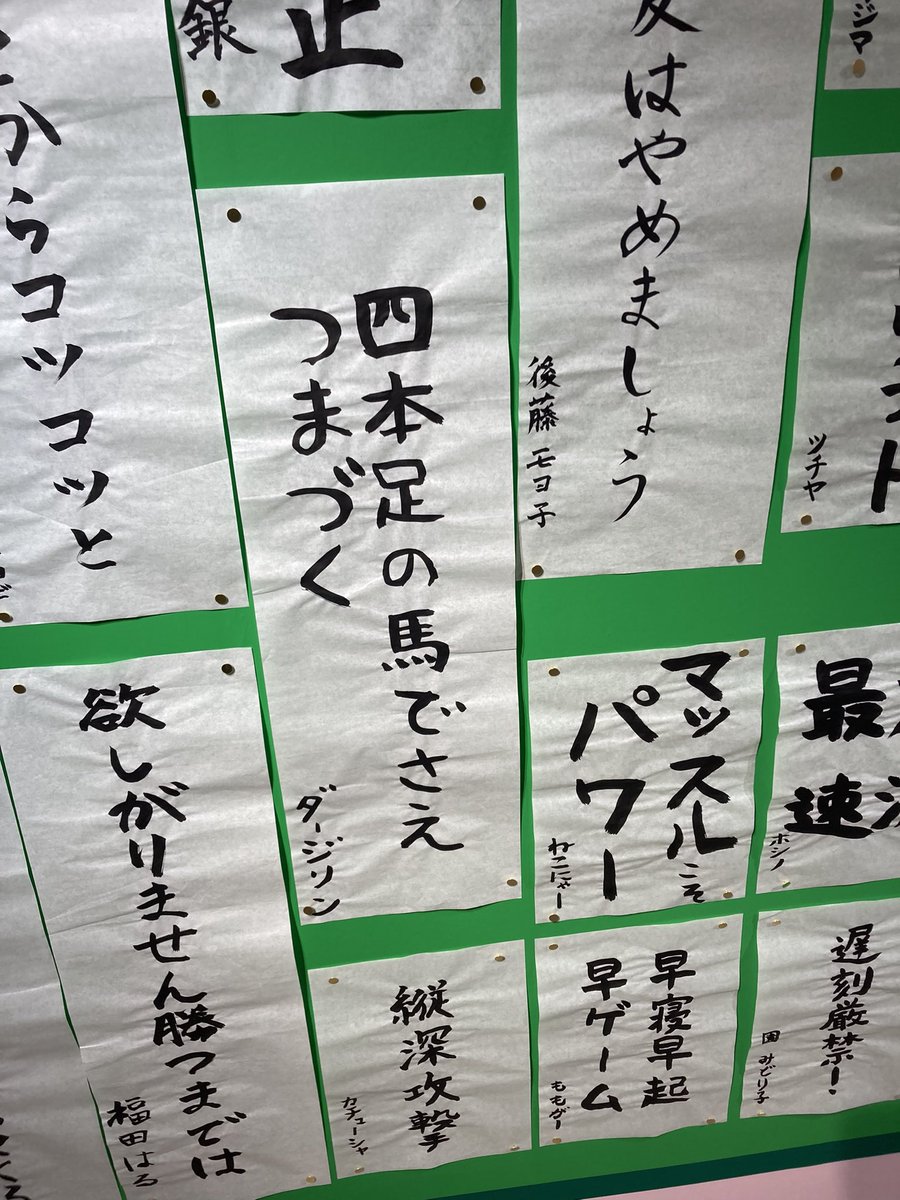 銀
正
はやめましょう
後藤モヨ子
ジマ
からコツコツと
四本足の馬でさえ
つまづく
ダージリン
ツチヤ
欲しがりません勝つまでは
福田はる
マッスルこそ
パワー
ねこにゃー
最速
ホシノ
縦深攻撃
カチューシャ
早寝早起
早ゲーム
ももがー
遅刻厳禁!
園みどり子